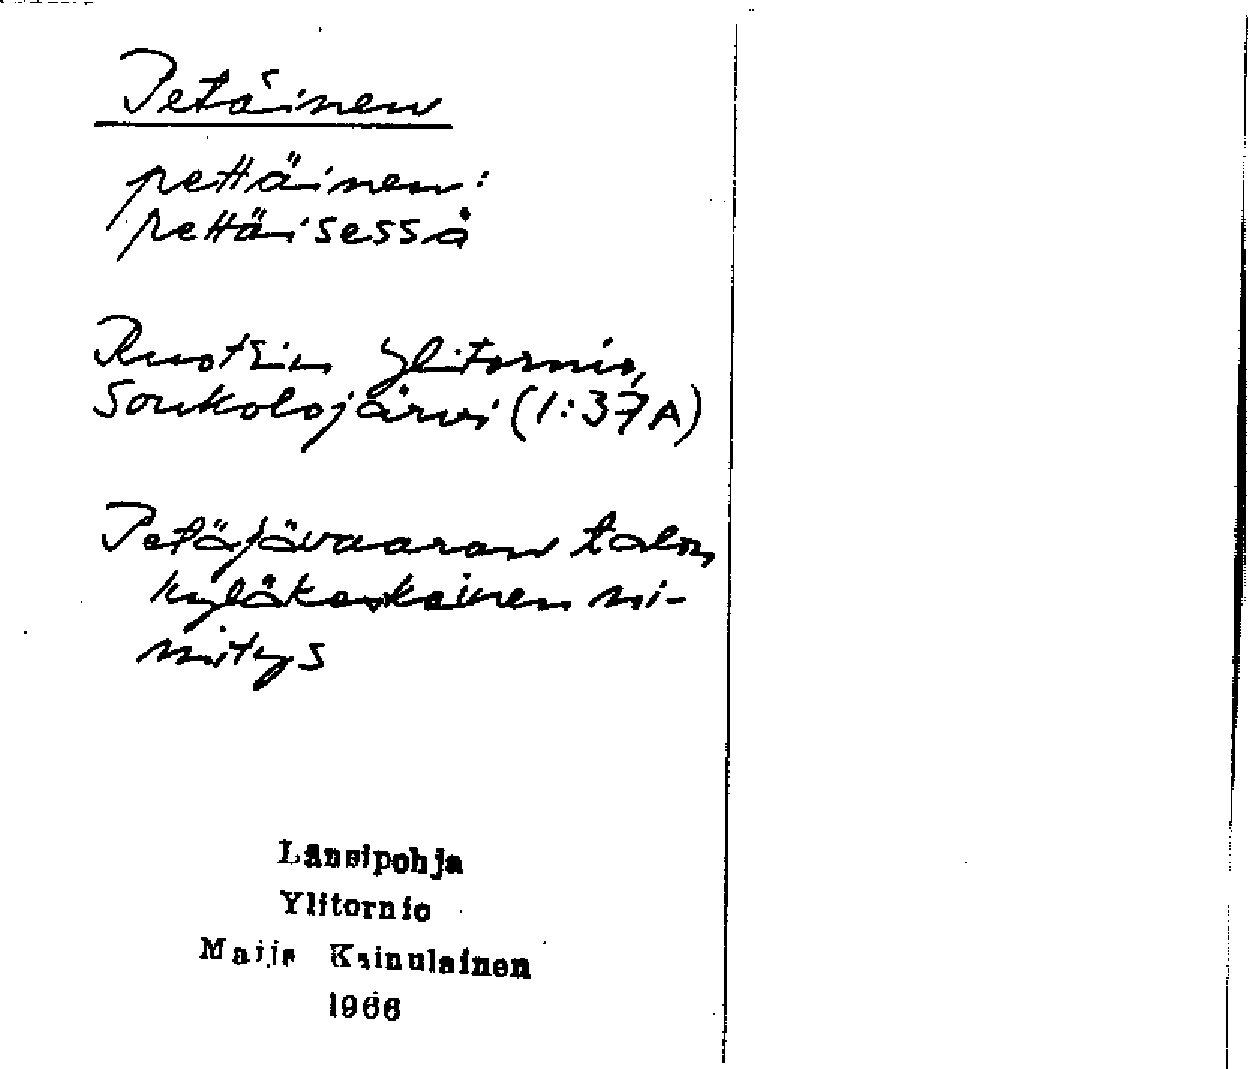 Petäinen
pettäinen:
pettäisessä
Ruotsin Ylitornio,
Soukolojärvi (1:37A)
Petäjävaaran talon
kyläkeskeinen ni-
mitys
Länsipohja
Ylitornio
Maija Kainulainen
1966